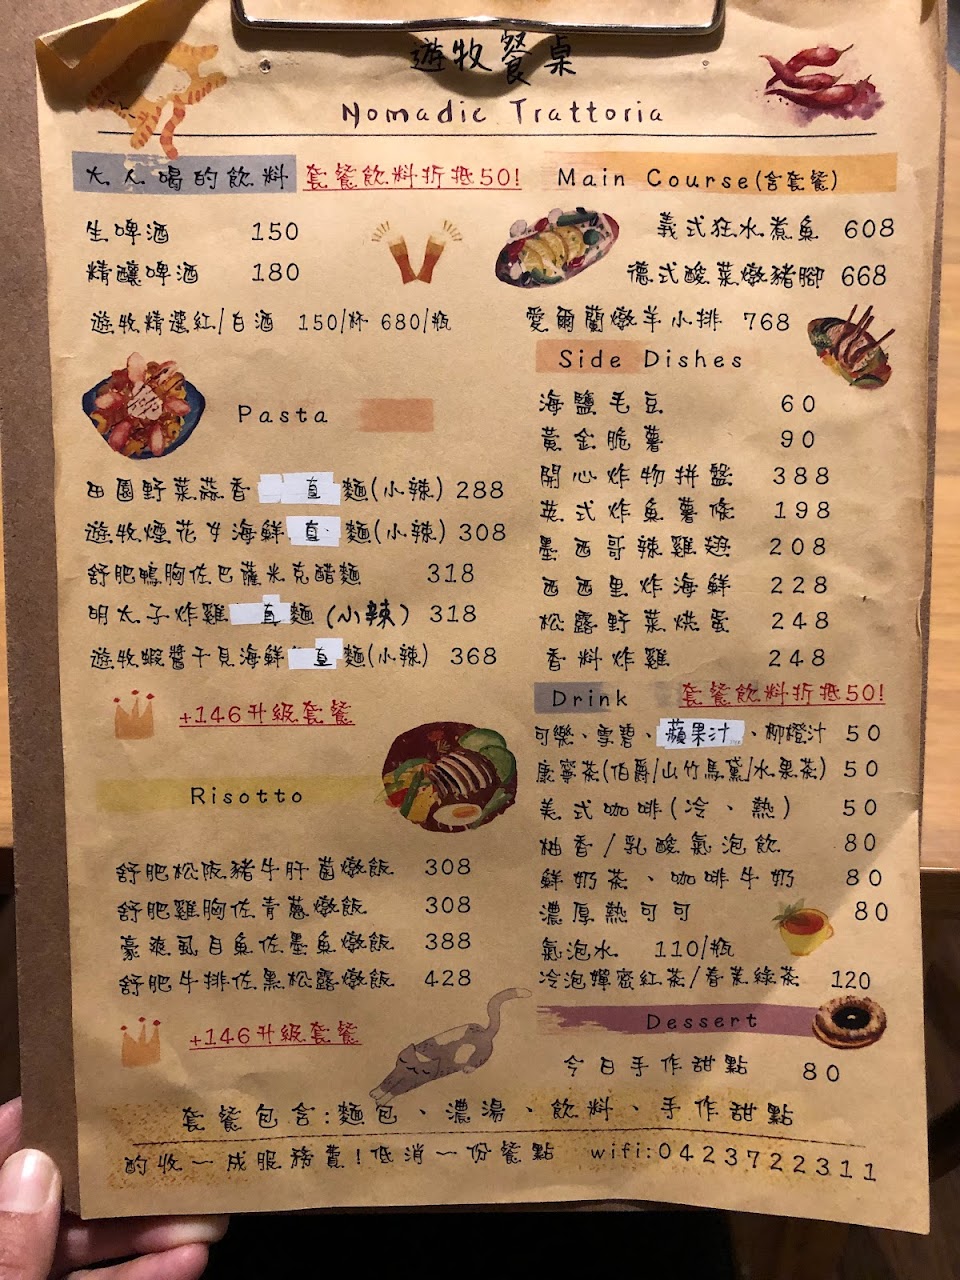 遊牧餐桌
Nomadic Trattoria
大人喝的飲料 套餐飲料折抵50!
生啤酒 150
精釀啤酒 180
遊牧精選紅/白酒 150/杯 680/瓶
Pasta
田園野菜蒜香 直麵(小辣) 288
遊牧煙花女海鮮 直麵(小辣) 308
舒肥鴨胸佐巴薩米克醋麵 318
明太子炸雞 直麵(小辣) 318
遊牧蝦醬干貝海鮮 直麵(小辣) 368
+146升級套餐
Risotto
舒肥松阪豬牛肝菌燉飯 308
舒肥雞胸佐青蔥燉飯 308
豪爽虱目魚佐墨魚燉飯 388
舒肥牛排佐黑松露燉飯 428
+146升級套餐
Main Course(含套餐)
義式狂水煮魚 608
德式酸菜燉豬腳 668
愛爾蘭燉羊小排 768
Side Dishes
海鹽毛豆 60
黃金脆薯 90
開心炸物拼盤 388
英式炸魚薯條 198
墨西哥辣雞翅 208
西西里炸海鮮 228
松露野菜烘蛋 248
香料炸雞 248
Drink 套餐飲料折抵50!
可樂、雪碧、蘋果汁、柳橙汁 50
康寧茶(伯爵/山竹馬黛/水果茶) 50
美式咖啡(冷、熱) 50
柚香/乳酸氣泡飲 80
鮮奶茶、咖啡牛奶 80
濃厚熱可可 80
氣泡水 110/瓶
冷泡嬋密紅茶/春茉綠茶 120
Dessert
今日手作甜點 80
套餐包含:麵包、濃湯、飲料、手作甜點
酌收一成服務費!低消一份餐點 wifi:0423722311